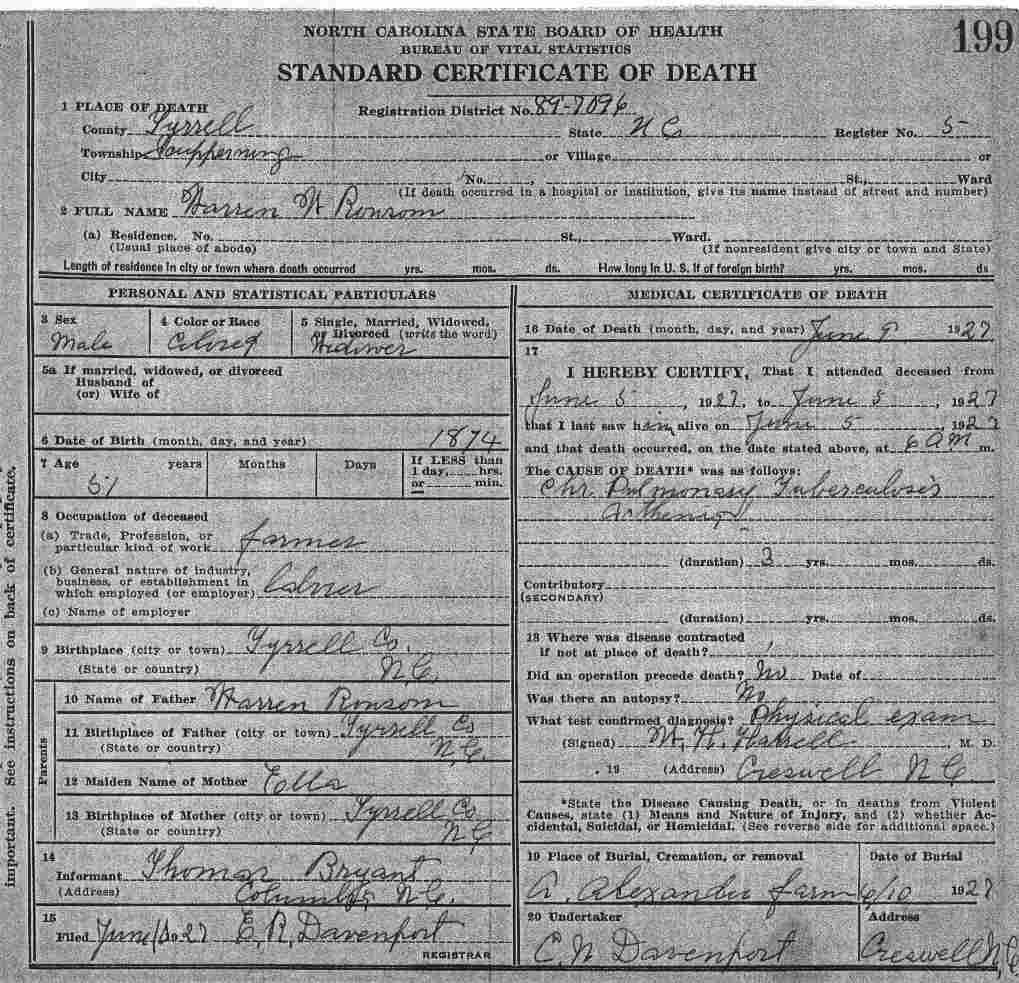 199
NORTH CAROLINA STATE BOARD OF HEALTH
BUREAU OF VITAL STATISTICS
STANDARD CERTIFICATE OF DEATH
1 PLACE OF DEATH
Registration District No. 89-7096
County Tyrrell State N C Register No. 5
Township Scuppernong or Village or
City No. , St., Ward
(If death occurred in a hospital or institution, give its name instead of street and number)
2 FULL NAME Warren W Ronsom
(a) Residence. No. St., Ward.
(Usual place of abode) (If nonresident give city or town and State)
Length of residence in city or town where death occurred yrs. mos. ds. How long in U. S. if of foreign birth? yrs. mos. ds
PERSONAL AND STATISTICAL PARTICULARS
3 Sex
Male
4 Color or Race
Colored
5 Single, Married, Widowed,
or Divorced (write the word)
Widower
5a If married, widowed, or divorced
Husband of
(or) Wife of
6 Date of Birth (month, day, and year) 1874
7 Age years Months Days If LESS than
1 day, hrs.
or min.
51
8 Occupation of deceased
(a) Trade, Profession, or
particular kind of work farmer
(b) General nature of industry,
business, or establishment in
which employed (or employer)
(c) Name of employer
9 Birthplace (city or town) Tyrrell Co.
(State or country) N.C.
Parents
10 Name of Father Warren Ronsom
11 Birthplace of Father (city or town) Tyrrell Co
(State or country) N.C.
12 Maiden Name of Mother Ella
13 Birthplace of Mother (city or town) Tyrrell Co
(State or country) N C
14
Informant Thomas Bryant
(Address) Columbia N.C.
15
Filed June 1927 E. R. Davenport
REGISTRAR
MEDICAL CERTIFICATE OF DEATH
16 Date of Death (month, day, and year) June 9 1927
17
I HEREBY CERTIFY, That I attended deceased from
June 5, 1927, to June 5, 1927
that I last saw him alive on June 5, 1927
and that death occurred, on the date stated above, at 6 AM m.
The CAUSE OF DEATH* was as follows:
Chr Pulmonary Tuberculosis
(duration) 3 yrs. mos. ds.
Contributory
(SECONDARY)
(duration) yrs. mos. ds.
18 Where was disease contracted
if not at place of death?
Did an operation precede death? No Date of
Was there an autopsy? No
What test confirmed diagnosis? Physical exam
(Signed) W. H. Harrell, M. D.
, 19 (Address) Creswell N C.
*State the Disease Causing Death, or in deaths from Violent
Causes, state (1) Means and Nature of Injury, and (2) whether Ac-
cidental, Suicidal, or Homicidal. (See reverse side for additional space.)
19 Place of Burial, Cremation, or removal Date of Burial
A. Alexander farm 6/10 1927
20 Undertaker Address
C. N Davenport Creswell N.C.
important. See instructions on back of certificate.